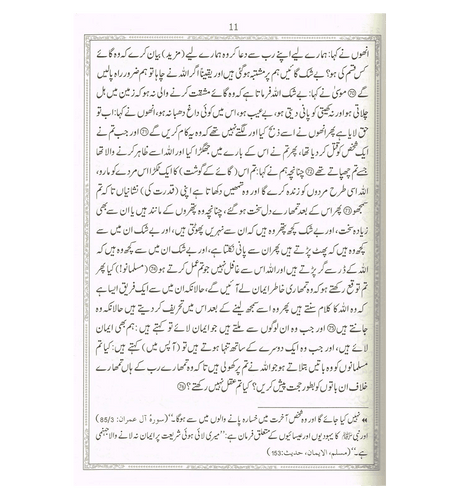 11
انھوں نے کہا: ہمارے لیے اپنے رب سے دعا کر وہ ہمارے لیے (مزید) بیان کرے کہ وہ گائے
کس قسم کی ہو؟ بے شک گائیں ہم پر مشتبہ ہو گئی ہیں اور یقیناً اگر اللہ نے چاہا تو ہم ضرور راہ پالیں
گے ﴿70﴾ موسیٰ نے کہا: بے شک اللہ فرماتا ہے کہ وہ گائے مشقت کرنے والی نہ ہو کہ زمین میں ہل
چلاتی ہو اور نہ کھیتی کو پانی دیتی ہو، بے عیب ہو، اس میں کوئی داغ دھبا نہ ہو، انھوں نے کہا: اب تو
حق لایا ہے پھر انھوں نے اسے ذبح کیا اور لگتے نہیں تھے کہ وہ یہ کام کریں گے ﴿71﴾ اور جب تم نے
ایک شخص کو قتل کر دیا تھا، پھر تم نے اس کے بارے میں جھگڑا کیا اور اللہ اسے ظاہر کرنے والا تھا
جسے تم چھپاتے تھے ﴿72﴾ چنانچہ ہم نے کہا: تم اس (گائے کے گوشت) کا ایک ٹکڑا اس مردے کو مارو،
اللہ اسی طرح مردوں کو زندہ کرے گا اور وہ تمھیں دکھاتا ہے اپنی (قدرت کی) نشانیاں تاکہ تم
سمجھو ﴿73﴾ پھر اس کے بعد تمھارے دل سخت ہو گئے، چنانچہ وہ پتھروں کے مانند ہیں یا ان سے بھی
زیادہ سخت، اور بے شک کچھ پتھر وہ ہیں کہ ان سے نہریں پھوٹتی ہیں، اور بے شک ان میں سے
کچھ وہ ہیں کہ پھٹ پڑتے ہیں پھر ان سے پانی نکلتا ہے، اور بے شک ان میں سے کچھ وہ ہیں کہ
اللہ کے ڈر سے گر پڑتے ہیں اور اللہ اس سے غافل نہیں جو تم عمل کرتے ہو ﴿74﴾ (مسلمانو!) کیا پھر
تم توقع رکھتے ہو کہ وہ تمھاری خاطر ایمان لے آئیں گے، حالانکہ ان میں سے ایک فریق ایسا ہے
کہ وہ اللہ کا کلام سنتے ہیں پھر وہ اسے سمجھ لینے کے بعد اس میں تحریف کر دیتے ہیں حالانکہ وہ
جانتے ہیں ﴿75﴾ اور جب وہ ان لوگوں سے ملتے ہیں جو ایمان لائے تو کہتے ہیں: ہم بھی ایمان
لائے ہیں، اور جب وہ ایک دوسرے کے ساتھ تنہا ہوتے ہیں تو (آپس میں) کہتے ہیں: کیا تم
مسلمانوں کو وہ باتیں بتلاتے ہو جو اللہ نے تم پر کھولی ہیں تاکہ وہ تمھارے رب کے ہاں تمھارے
خلاف ان باتوں کو بطور حجت پیش کریں؟ کیا تم عقل نہیں رکھتے؟ ﴿76﴾
◄◄ نہیں کیا جائے گا اور وہ شخص آخرت میں خسارہ پانے والوں میں سے ہوگا۔“ (سورۂ آل عمران: 85/3)
اور نبی ﷺ کا یہودیوں اور عیسائیوں کے متعلق فرمان ہے: ”میری لائی ہوئی شریعت پر ایمان نہ لانے والا جہنمی
ہے۔“ (مسلم، الایمان، حدیث: 153)